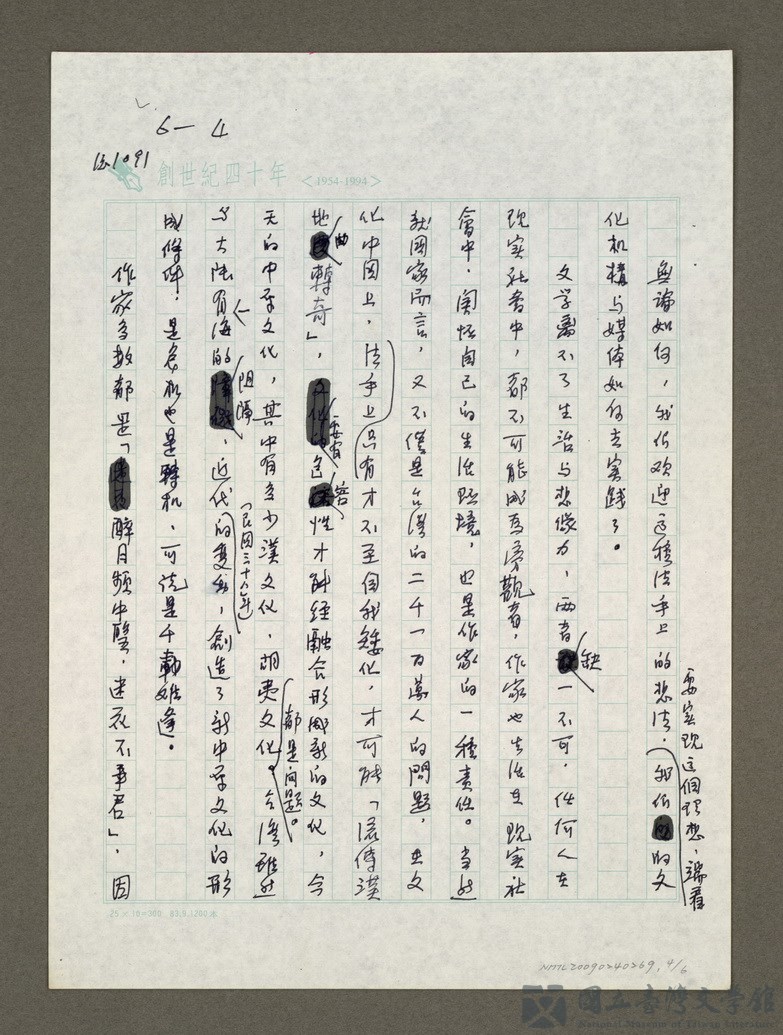 6—4
創世紀四十年
<1954-1994>
無論如何,我们欢迎這種法手上的想法,我们的文
要实现這個理想,端看
化机構与媒体如何去实践了。
文学离不了生活与想像力,两者缺一不可,任何人在
现实社會中,都不可能成為旁觀者,作家也生活在现实社
會中,関怀自己的生活环境,也是作家的一種責任。当然
就国家而言,又不僅是台湾的二千一百萬人的問題,在文
化中国上,法手上只有才不至自我矮化,才可能「流傳漢
地曲轉奇」,要有包容性才能經融合形成新的文化,今
天的中华文化,其中有多少漢文化,胡夷文化,都是问題。台湾雖然
与大陆有海的阻隔,近代(民国三十八年)的变动,創造了新中华文化的形
成條件,是危机也是轉机,可说是千載难逢。
作家多数都是「醉日頻中聖,迷花不事君」,因
25×10=300 83.9.1200本
NMTL20090240269, 4/6
國立臺灣文學館
National Museum of Taiwan Literature